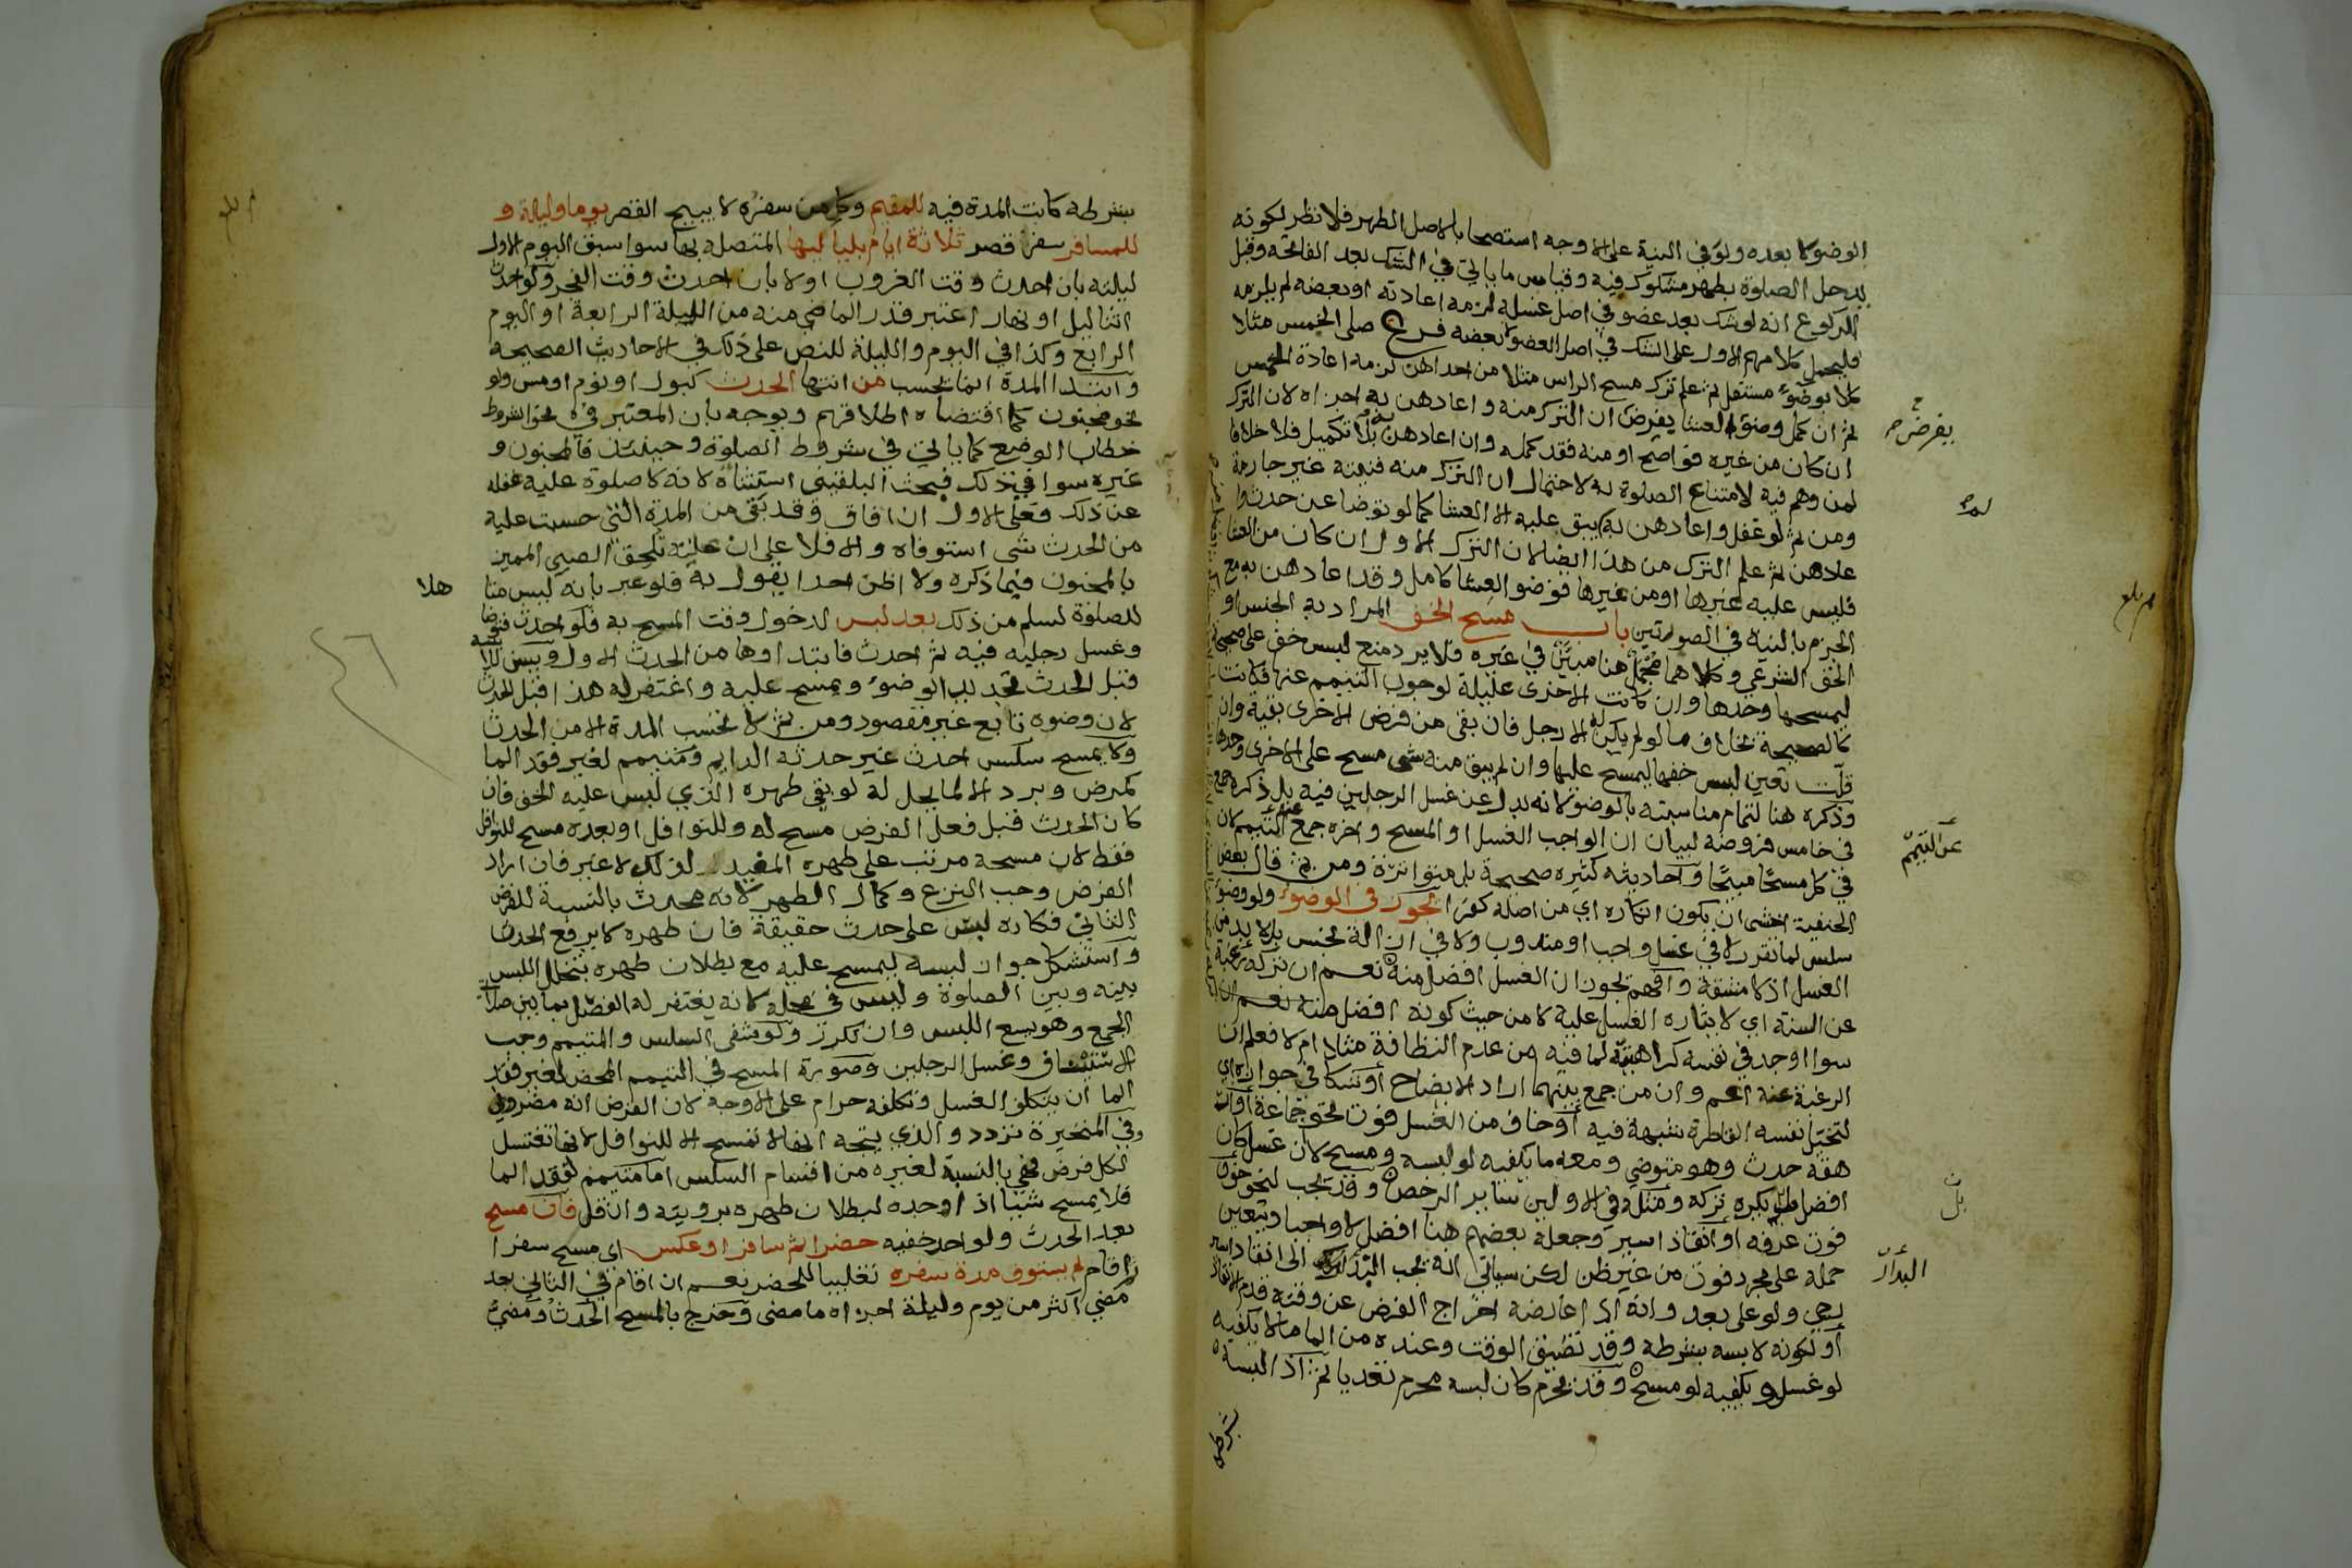 الوضو لا بعده ولو في النية على الاوجه استصحابا لاصل الطهر فلا نظر لكونه
يدخل الصلوة بطهر مشكوك فيه وقياس ما ياتي في الشك بعد الفاتحة وقبل
الركوع انه لو شك بعد عضو في اصل غسله لزمه اعادته او بعضه لم يلزمه
فليحمل كلامهم الاول على الشك في اصل العضو لا بعضه فرع صلى الخمس مثلا
كلا بوضوء مستقل ثم علم ترك مسح الراس مثلا من احداهن لزمه اعادة الخمس
ثم ان كمل وضوء العشا يفرض ان الترك منه واعادهن به اجزاه لان الترك
ان كان من غيره فواضح او منه فقد كمله وان اعادهن به بلا تكميل فلا خلافا
لمن وهم فيه لامتناع الصلوة به لاحتمال ان الترك منه فنيته غير جازمة
ومن ثم لو غفل واعادهن به لم يبق عليه الا العشا كما لو توضا عن حدث و
عادهن ثم علم الترك من هذا ايضا لان الترك الاول ان كان من العشا
فليس عليه غيرها او من غيرها فوضو العشا كامل وقد اعادهن به مع
الجزم بالنية في الصورتين باب مسح الخف المراد به الجنس او
الخف الشرعي وكلاهما مجمل هنا مبين في غيره فلا يرد منع لبس خف على صحيحة
ليمسحها وحدها وان كانت الاخرى عليلة لوجوب التيمم عنها فكانت
كالصحيحة بخلاف ما لو لم يكن له الا رجل فان بقي من فرض الاخرى بقية وان
قلت تعين لبس خفها ليمسح عليها وان لم يبق منه شي مسح على الاخرى وحدها
وذكره هنا لتمام مناسبته بالوضو لانه بدل عن غسل الرجلين فيه بل ذكره جمع
في خامس فروضه لبيان ان الواجب الغسل او المسح واخره جمع عن التيمم لان
في كل مسحا مبيحا واحاديثه كثيرة صحيحة بل متواترة ومن ثم قال بعض
الحنفية اخشى ان يكون انكاره اي من اصله كفرا يجوز في الوضوء ولو وضو
سلس لما تقرر لا في غسل واجب او مندوب ولا في ازالة نجس بل لا بد من
الغسل اذ لا مشقة وافهم يجوز ان الغسل افضل منه نعم ان تركه رغبة
عن السنة اي لايثاره الغسل عليه لا من حيث كونه افضل منه نعم
سوا اوجد في نفسه كراهيته لما فيه من عدم النظافة مثلا ام لا فعلم ان
الرغبة عنه اعم وان من جمع بينهما اراد الايضاح او شكا في جوازه اي
لتخيل نفسه القاصرة شبهة فيه او خاف من الغسل فوت نحو جماعة او
هقه حدث وهو متوضي ومعه ما يكفيه لو لبسه ومسح لان غسل كان
افضل بل يكره تركه ومثله في الاولين ساير الرخص وقد يجب لنحو خوف
فوت عرفه او انقاذ اسير وجعله بعضهم هنا افضل لا واجبا ويتعين
حمله على مجرد فوت من غير ظن لكن سياتي انه يجب البدار الى انقاذ اسير
رجي ولو على بعد وانه اذا عارضه اخراج الفرض عن وقته قدم الانقاذ
او لكونه لابسه بشرطه وقد تضيق الوقت وعنده من الما ما لا يكفيه
لو غسل ويكفيه لو مسح وقد يحرم كان لبسه محرم تعديا ثم اذا لبسه
بشرطه
يفرض
عن التيمم
البدار
بلغ
بشرطه كانت المدة فيه للمقيم وكل من سفره لا يبيح القصر يوما وليلة و
للمسافر سفر قصر ثلاثة ايام بلياليها المتصلة بها سوا سبق اليوم الاول
ليلته بان احدث وقت الغروب او لا بان احدث وقت الفجر ولو احدث
اثنا ليل او نهار اعتبر قدر الماضي منه من الليلة الرابعة او اليوم
الرابع وكذا في اليوم والليلة للنص على ذلك في الاحاديث الصحيحة
وابتدا المدة انما تحسب من انتها الحدث كبول او نوم او مس ولو
نحو مجنون كما اقتضاه اطلاقهم ويوجه بان المعتبر في نحو الشروط
خطاب الوضع كما ياتي في شروط الصلوة وحينئذ فالمجنون و
غيره سوا في ذلك فبحث البلقيني استثناه لانه لا صلوة عليه غفلة
عن ذلك فعلى الاول ان افاق وقد بقي من المدة التي حسبت عليه
من الحدث شي استوفاه والا فلا على ان علته تلحق الصبي المميز
بالمجنون فيما ذكره ولا اظن احدا يقول به فلو عبر بانه ليس متاهلا
للصلوة لسلم من ذلك بعد لبس لدخول وقت المسح به فلو احدث فتوضا
وغسل رجليه فيه ثم احدث فابتداوها من الحدث الاول ويسن للابسه
قبل الحدث تجديد الوضوء ويمسح عليه واغتفر له هذا قبل الحدث
لان وضوه تابع غير مقصود ومن ثم لا تحسب المدة الا من الحدث
ولا يمسح سلس احدث غير حدثه الدايم ومتيمم لغير فقد الما
كمرض وبرد الا لما يحل له لو بقي طهره الذي لبس عليه الخف فان
كان الحدث قبل فعل الفرض مسح له وللنوافل او بعده مسح للنوافل
فقط لان مسحه مرتب على طهره المفيد لذلك لا غير فان اراد
الفرض وجب النزع وكمال الطهر لانه محدث بالنسبة للفرض
الثاني فكانه لبس على حدث حقيقة فان طهره لا يرفع الحدث
واستشكل جواز لبسه ليمسح عليه مع بطلان طهره بتخلل اللبس
بينه وبين الصلوة وليس في محله لانه يغتفر له الفصل بما بين صلاتي
الجمع وهو يسع اللبس وان تكرر ولو شفي السلس والمتيمم وجب
الاستيناف وغسل الرجلين وصورة المسح في التيمم المحض لغير فقد
الما ان يتكلف الغسل وتكلفه حرام على الاوجه لان الفرض انه مضر
وفي المتحيرة تردد والذي يتجه انها لا تمسح الا للنوافل لانها تغتسل
لكل فرض فهي بالنسبة لغيره من اقسام السلس اما متيمم لفقد الما
فلا يمسح شيا اذا وجده لبطلان طهره برويته وان قل فان مسح
بعد الحدث ولو احد خفيه حضرا ثم سافر او عكس اي مسح سفرا
واقام لم يستوف مدة سفره تغليبا للحضر نعم ان اقام في الثاني بعد
مضي اكثر من يوم وليلة اجزاه ما مضى وخرج بالمسح الحدث ومضي